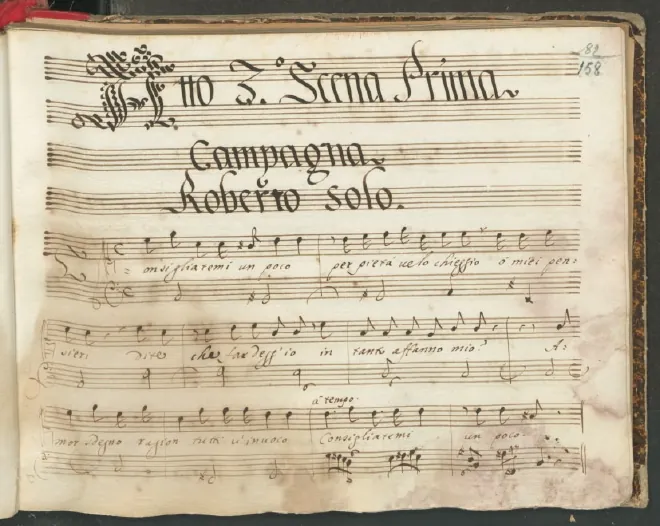 82
158
Atto 3.º Scena Prima.
Campagna.
Roberto solo.
Consigliatemi un poco per pietà ve lo chieggio ò miei pen:
sieri dite che far degg'io in tanto affanno mio? A:
à tempo.
mor sdegno ragion tutti v'invoco Consigliatemi un poco